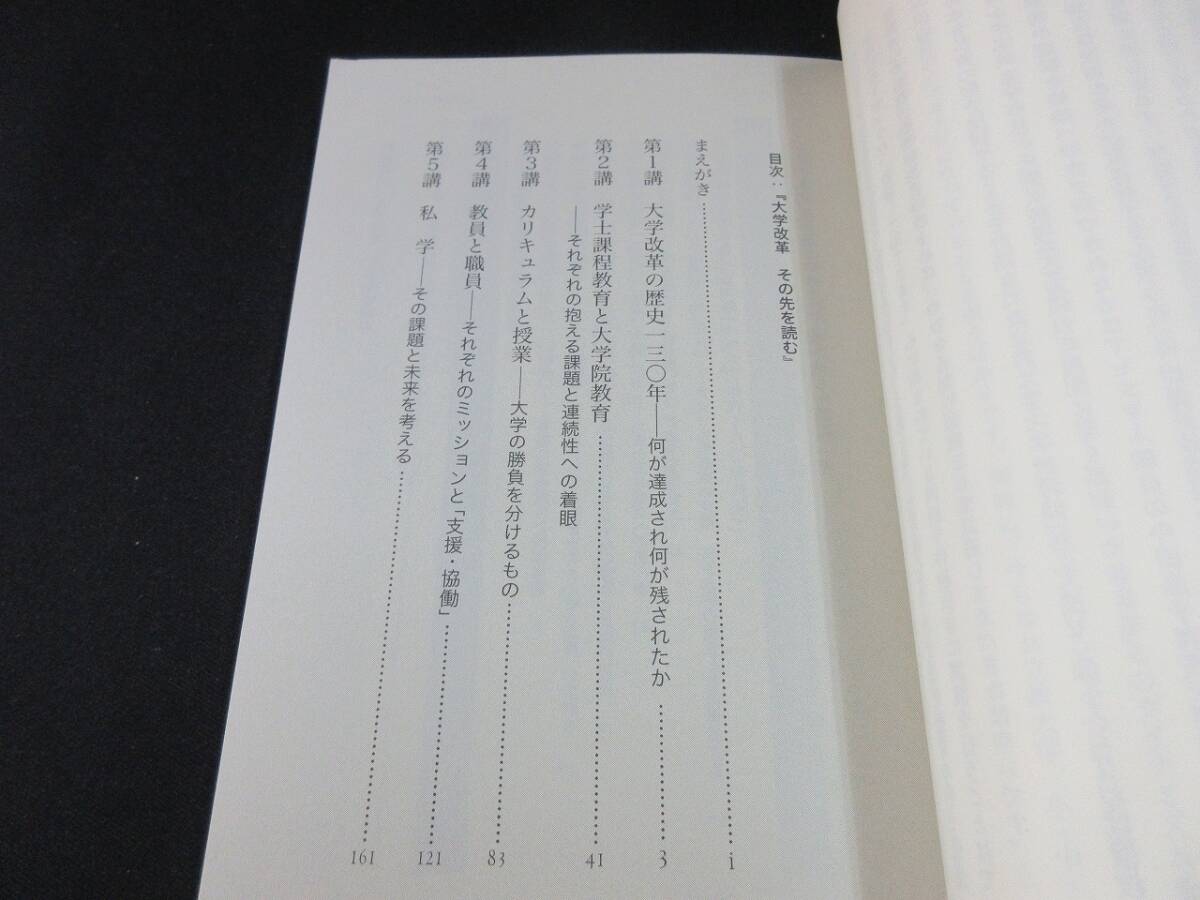 目次：『大学改革　その先を読む』
まえがき……………………………………………………… i
第1講　大学改革の歴史一三〇年――何が達成され何が残されたか………… 3
第2講　学士課程教育と大学院教育……………………………… 41
――それぞれの抱える課題と連続性への着眼
第3講　カリキュラムと授業――大学の勝負を分けるもの………………… 83
第4講　教員と職員――それぞれのミッションと「支援・協働」……………… 121
第5講　私　学――その課題と未来を考える……………………………… 161